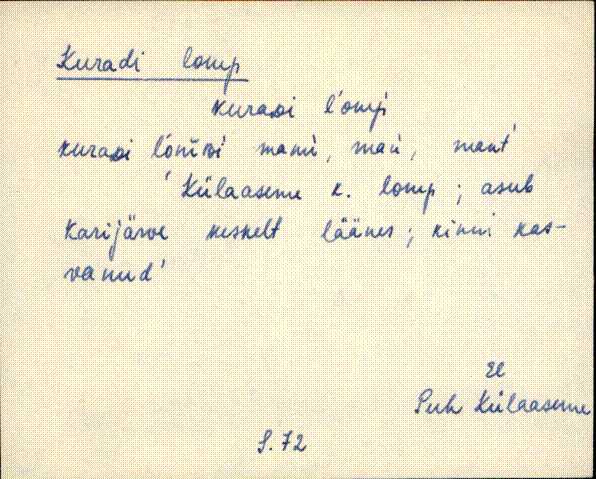 Kuradi lomp
kuraᴅi l'omp̀
kuraᴅi manù, maǹ, mant'
'Külaaseme k. lomp; asub
Karijärve keskelt läänes; kinni kas-
vanud'
El
Puh Külaaseme
S.72